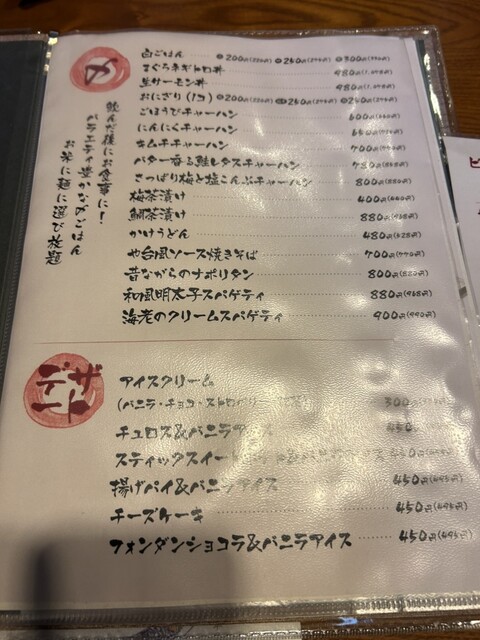 め
飲んだ後にお食事に!
バラエティ豊かな〆ごはん
お米に麺に選び放題
白ごはん 小200円(220円) 中250円(275円) 大300円
まぐろネギトロ丼 980円(1,078円)
生サーモン丼 980円(1,078円)
おにぎり(1コ) 200円 250円 250円
ごほうびチャーハン 600円(660円)
にんにくチャーハン 650円
キムチチャーハン 700円(770円)
バター香る鮭レタスチャーハン 780円(858円)
さっぱり梅と塩こんぶチャーハン 800円(880円)
梅茶漬け 400円(440円)
鯛茶漬け 880円(968円)
かけうどん 480円(528円)
や台風ソース焼きそば 700円(770円)
昔ながらのナポリタン 800円(880円)
和風明太子スパゲティ 880円(968円)
海老のクリームスパゲティ 900円(990円)
デザート
アイスクリーム
(バニラ・チョコ・ストロベリー 300円
チュロス&バニラアイス 450円
スティックスイート 450円
揚げパイ&バニラアイス 450円(495円)
チーズケーキ 450円(495円)
フォンダンショコラ&バニラアイス 450円(495円)